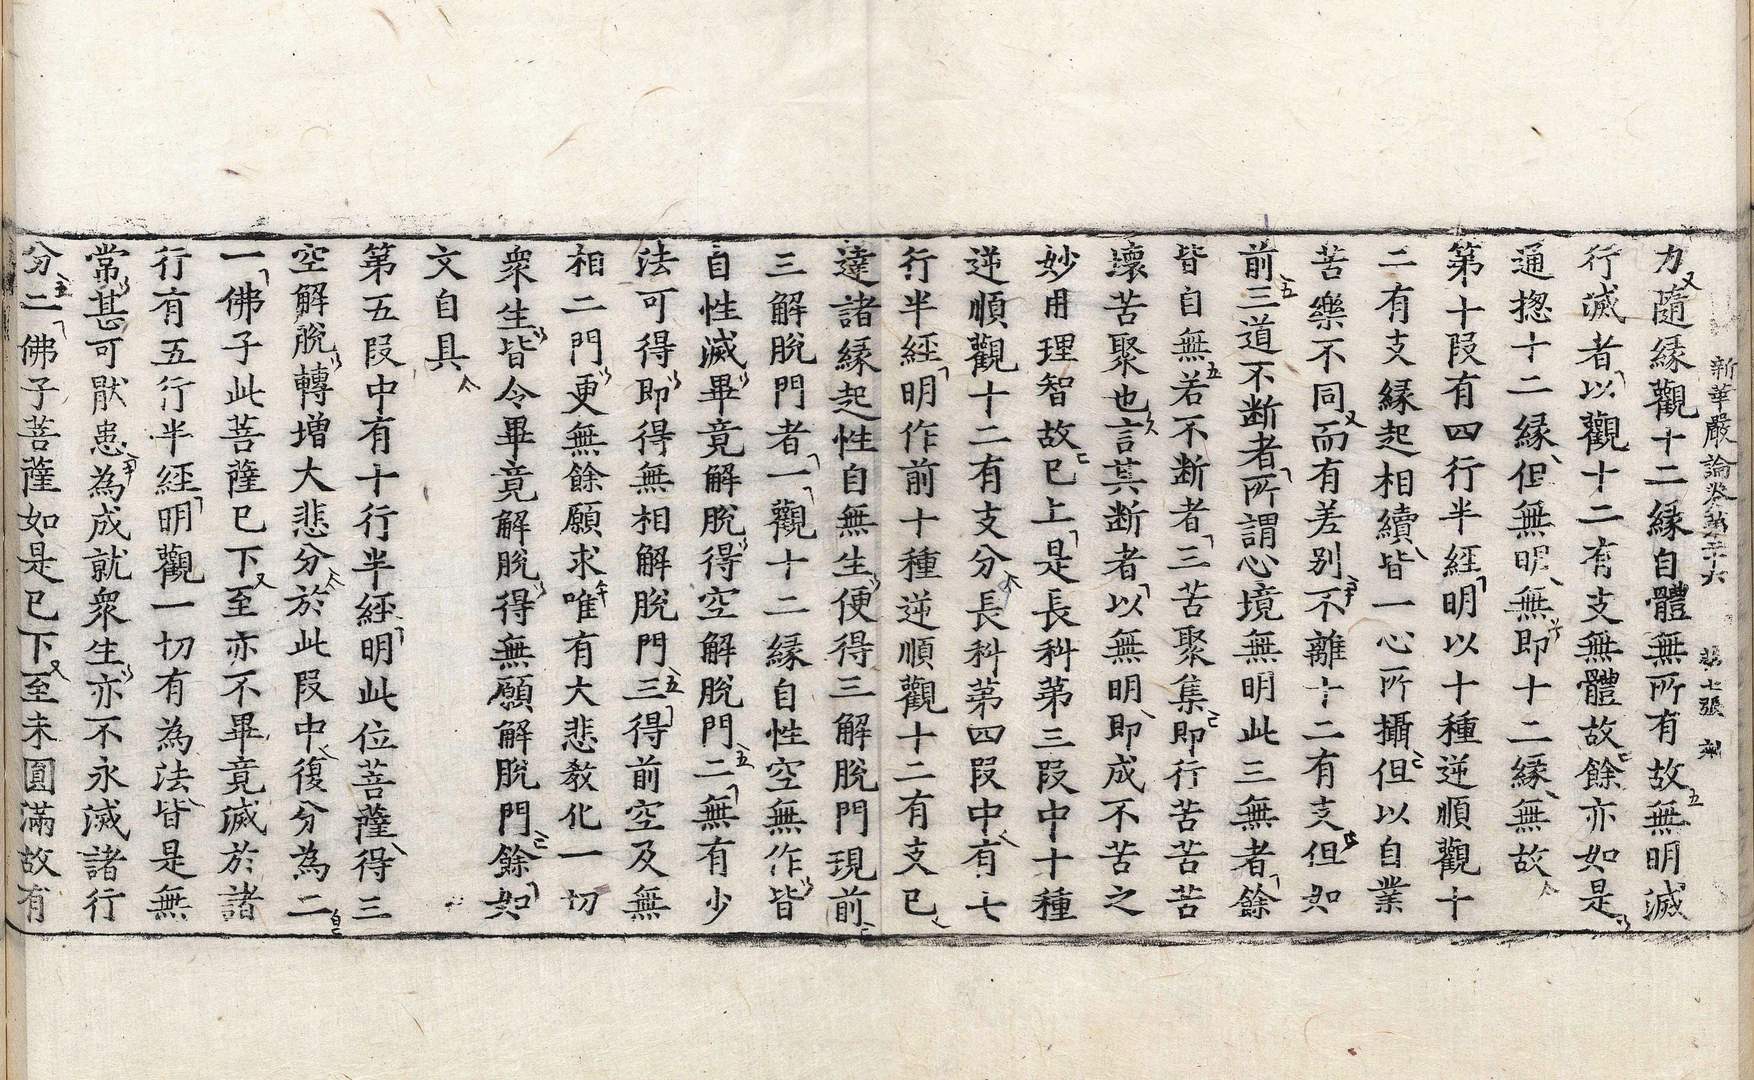 新華嚴論卷第二十六　第七張　剌
力隨縁觀十二縁自體無所有故無明滅
行滅者以觀十二有支無體故餘亦如是
通揔十二縁但無明無即十二縁無故
第十段有四行半經明以十種逆順觀十
二有支縁起相續皆一心所攝但以自業
苦樂不同而有差别不離十二有支但如
前三道不断者所謂心境無明此三無者餘
皆自無若不断者三苦聚集即行苦苦苦
壞苦聚也言其断者以無明即成不苦之
妙用理智故已上是長科第三段中十種
逆順觀十二有支分長科第四段中有七
行半經明作前十種逆順觀十二有支已
達諸縁起性自無生便得三解脫門現前
三解脫門者一觀十二縁自性空無作皆
自性滅畢竟解脫得空解脫門二無有少
法可得即得無相解脫門三得前空及無
相二門更無餘願求唯有大悲教化一切
衆生皆令畢竟解脫得無願解脫門餘如
文自具
第五段中有十行半經明此位菩薩得三
空解脫轉増大悲分於此段中復分為二
一佛子此菩薩已下至亦不畢竟滅於諸
行有五行半經明觀一切有為法皆是無
常甚可猒患為成就衆生亦不永滅諸行
分二佛子菩薩如是已下至未圓滿故有